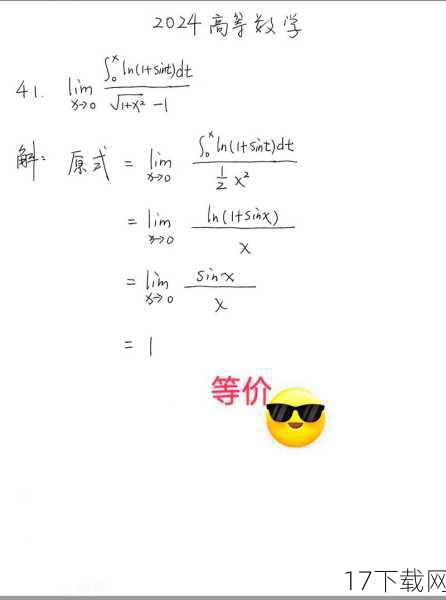 2024高等数学
41. lim x→0 ∫₀ˣ ln(1+sint)dt / √(1+x²) -1
解: 原式 = lim x→0 ∫₀ˣ ln(1+sint)dt / ½ x²
= lim x→0 ln(1+sinx) / x
= lim x→0 sinx / x
= 1
等价
17下载网